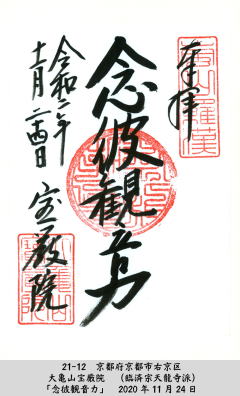 奉拝
嵐山羅漢
念彼観音力
令和二年
十一月二十四日
宝厳院
21-12 京都府京都市右京区
大亀山宝厳院 （臨済宗天龍寺派）
「念彼観音力」 2020年11月24日